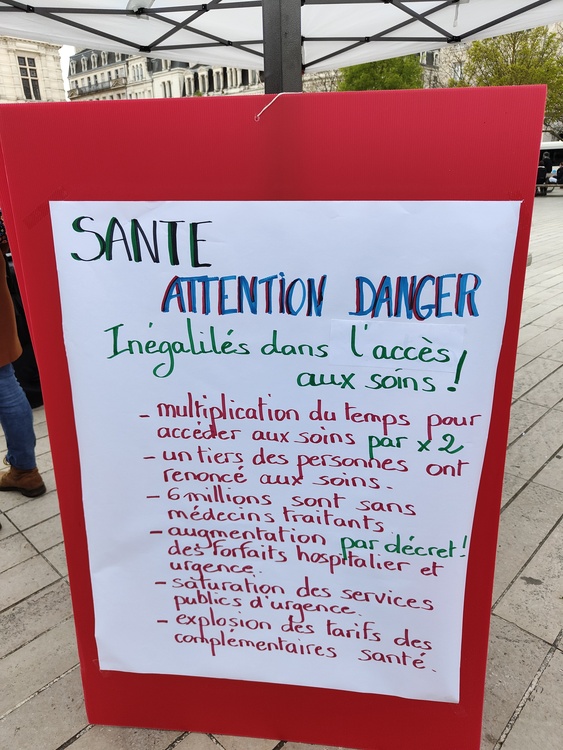 SANTE
ATTENTION DANGER
Inégalilés dans l'accès
aux soins !
- multiplication du temps pour
accéder aux soins par x 2
- un tiers des personnes ont
renoncé aux soins.
- 6 millions sont sans
médecins traitants
- augmentation par décret!
des forfaits hospitalier et
urgence.
- saturation des services
publics d'urgence.
- explosion des tarifs des
complémentaires santé.